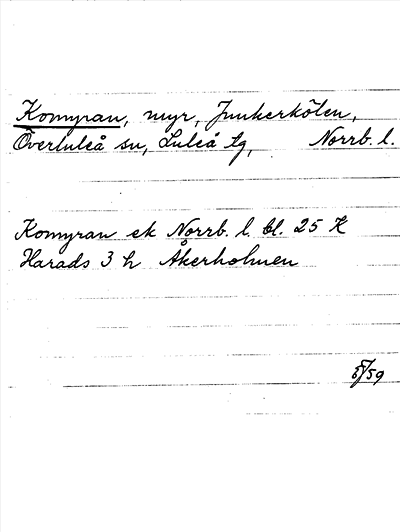 Komyran, myr, Junkerkölen,
Överluleå sn, Luleå tg, Norrb. l.
Komyran ek Norrb. l. bl. 25 K
Harads 3 h Åkerholmen
5/59